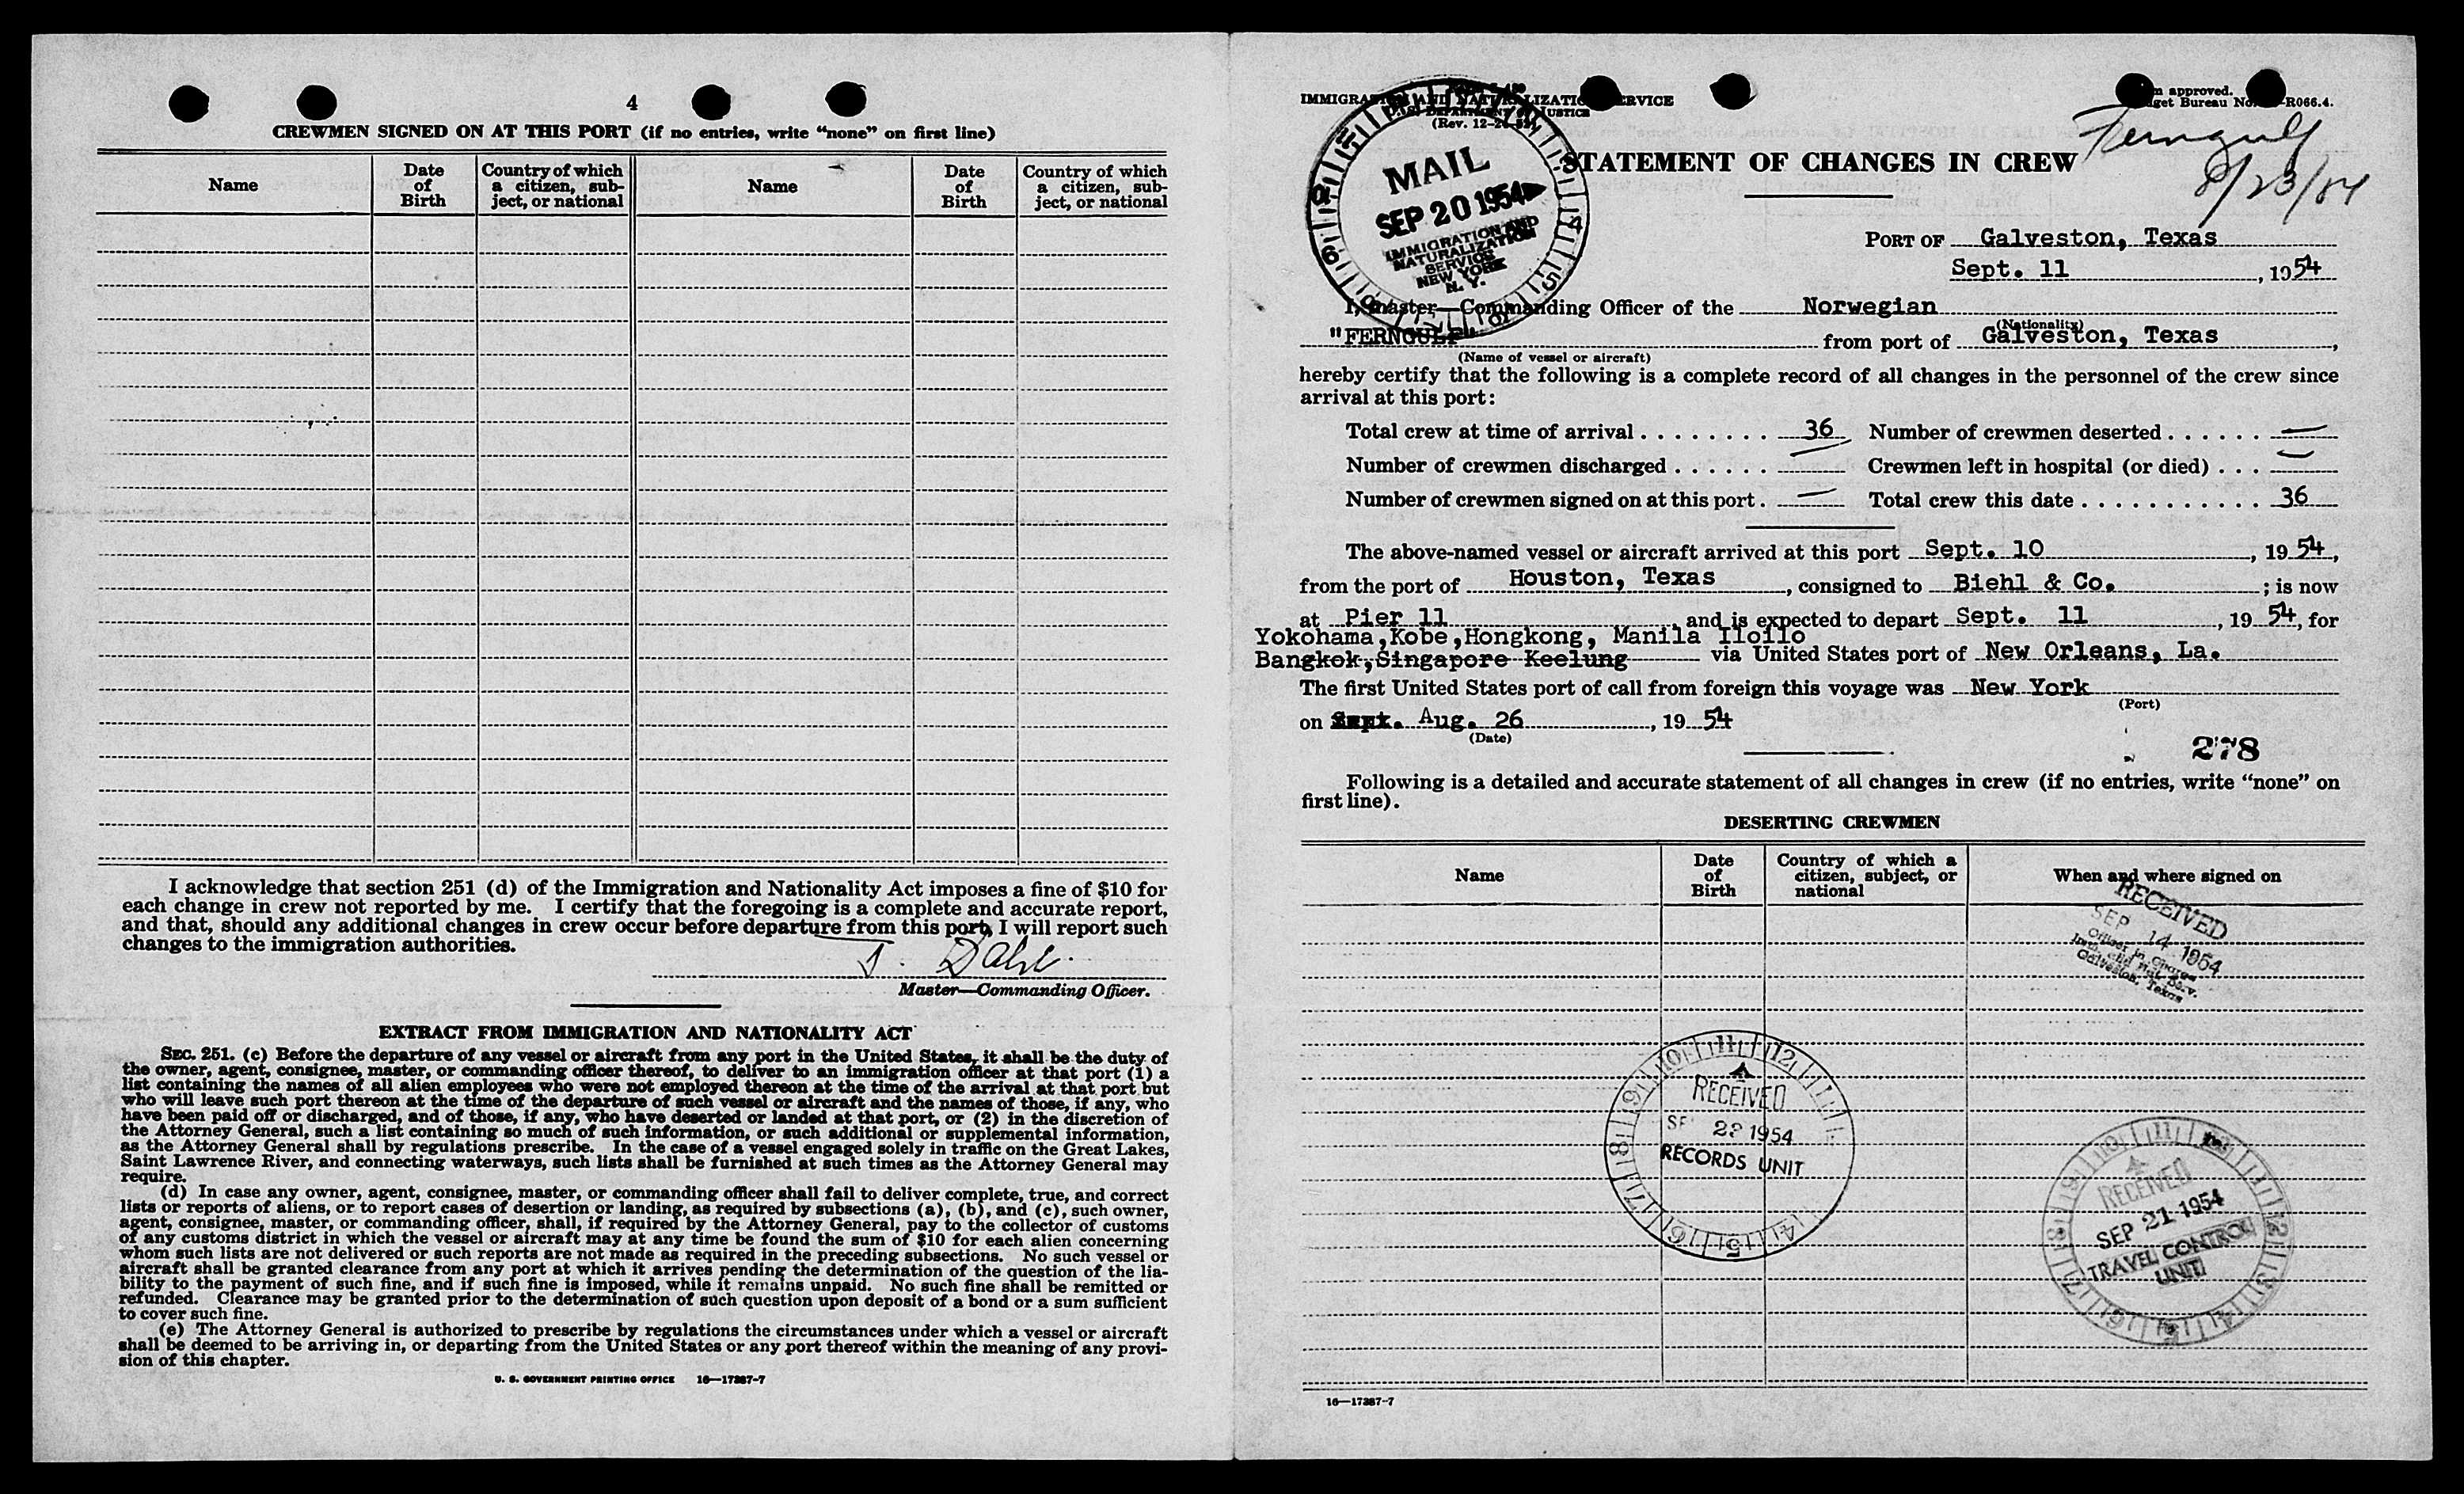 4
CREWMEN SIGNED ON AT THIS PORT (if no entries, write "none" on first line)
Name
Date of Birth
Country of which a citizen, sub-ject, or national
Name
Date of Birth
Country of which a citizen, sub-ject, or national
I acknowledge that section 251 (d) of the Immigration and Nationality Act imposes a fine of $10 for
each change in crew not reported by me. I certify that the foregoing is a complete and accurate report,
and that, should any additional changes in crew occur before departure from this port, I will report such
changes to the immigration authorities.
J. Dahl.
Master—Commanding Officer.
EXTRACT FROM IMMIGRATION AND NATIONALITY ACT
SEC. 251. (c) Before the departure of any vessel or aircraft from any port in the United States, it shall be the duty of
the owner, agent, consignee, master, or commanding officer thereof, to deliver to an immigration officer at that port (1) a
list containing the names of all alien employees who were not employed thereon at the time of the arrival at that port but
who will leave such port thereon at the time of the departure of such vessel or aircraft and the names of those, if any, who
have been paid off or discharged, and of those, if any, who have deserted or landed at that port, or (2) in the discretion of
the Attorney General, such a list containing so much of such information, or such additional or supplemental information,
as the Attorney General shall by regulations prescribe. In the case of a vessel engaged solely in traffic on the Great Lakes,
Saint Lawrence River, and connecting waterways, such lists shall be furnished at such times as the Attorney General may
require.
(d) In case any owner, agent, consignee, master, or commanding officer shall fail to deliver complete, true, and correct
lists or reports of aliens, or to report cases of desertion or landing, as required by subsections (a), (b), and (c), such owner,
agent, consignee, master, or commanding officer, shall, if required by the Attorney General, pay to the collector of customs
of any customs district in which the vessel or aircraft may at any time be found the sum of $10 for each alien concerning
whom such lists are not delivered or such reports are not made as required in the preceding subsections. No such vessel or
aircraft shall be granted clearance from any port at which it arrives pending the determination of the question of the lia-
bility to the payment of such fine, and if such fine is imposed, while it remains unpaid. No such fine shall be remitted or
refunded. Clearance may be granted prior to the determination of such question upon deposit of a bond or a sum sufficient
to cover such fine.
(e) The Attorney General is authorized to prescribe by regulations the circumstances under which a vessel or aircraft
shall be deemed to be arriving in, or departing from the United States or any port thereof within the meaning of any provi-
sion of this chapter.
U. S. GOVERNMENT PRINTING OFFICE 16—17387-7
IMMIGRATION AND NATURALIZATION SERVICE
approved.
Bureau No. -R066.4.
MAIL
SEP 20 1954
IMMIGRATION AND
NATURALIZATION
SERVICE
NEW YORK
N. Y.
Ferngulf
STATEMENT OF CHANGES IN CREW
PORT OF Galveston, Texas
Sept. 11, 1954
I, master—Commanding Officer of the Norwegian
(Nationality)
"FERNGULF" from port of Galveston, Texas,
(Name of vessel or aircraft)
hereby certify that the following is a complete record of all changes in the personnel of the crew since
arrival at this port:
Total crew at time of arrival . . . . . . . . 36 Number of crewmen deserted . . . . . . —
Number of crewmen discharged . . . . . . — Crewmen left in hospital (or died) . . . —
Number of crewmen signed on at this port . — Total crew this date . . . . . . . . . . . 36
The above-named vessel or aircraft arrived at this port Sept. 10, 1954,
from the port of Houston, Texas, consigned to Biehl & Co. ; is now
at Pier 11, and is expected to depart Sept. 11, 1954, for
Yokohama,Kobe,Hongkong, Manila Iloilo
Bangkok,Singapore Keelung via United States port of New Orleans, La.
The first United States port of call from foreign this voyage was New York
(Port)
on Aug. 26, 1954
(Date)
278
Following is a detailed and accurate statement of all changes in crew (if no entries, write "none" on
first line).
DESERTING CREWMEN
Name
Date of Birth
Country of which a citizen, subject, or national
When and where signed on
RECEIVED
SEP 14 1954
Officer in Charge
Imm. and Nat. Serv.
Galveston, Texas
RECEIVED
1954
RECORDS UNIT
RECEIVED
SEP 21 1954
TRAVEL CONTROL
UNIT
16—17387-7